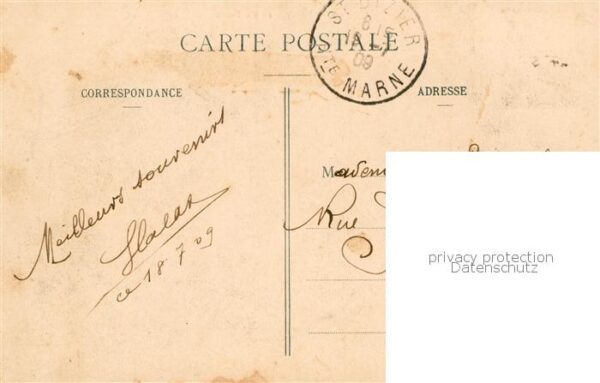 CARTE POSTALE
ST DIZIER
09
HTE MARNE
CORRESPONDANCE
ADRESSE
Meilleurs souvenirs
ce 18-7-09
Madem
Rue
privacy protection
Datenschutz